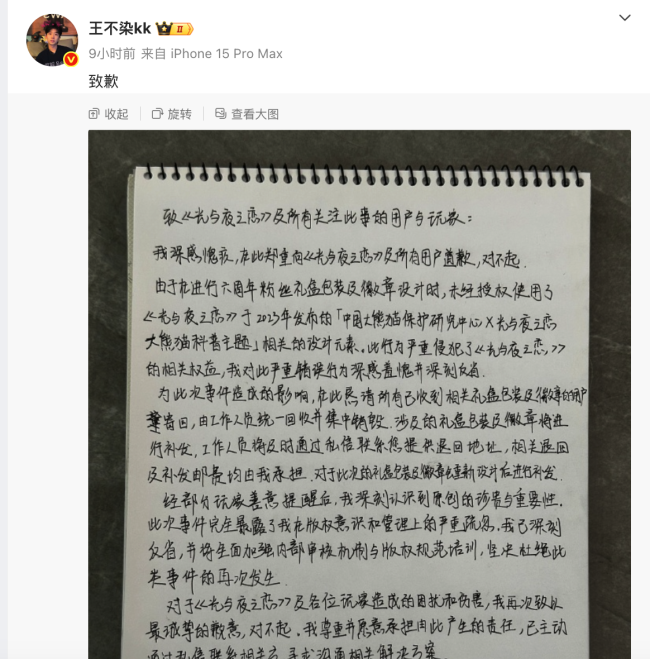 王不染kk
II
9小时前 来自 iPhone 15 Pro Max
致歉
收起 旋转 查看大图
致《光与夜之恋》及所有关注此事的用户与玩家：
我深感愧疚，在此郑重向《光与夜之恋》及所有用户道歉，对不起．
由于在进行六周年粉丝礼盒包装及徽章设计时，未经授权使用了
《光与夜之恋》于2023年发布的「中国大熊猫保护研究中心X光与夜之恋
大熊猫科普主题」相关的设计元素．此行为严重侵犯了《光与夜之恋》
的相关权益，我对此严重错误行为深感羞愧并深刻反省．
为此次事件造成的影响，在此恳请所有已收到相关礼盒包装及徽章的用户
寄回，由工作人员统一回收并集中销毁．涉及的礼盒包装及徽章将进
行补发，工作人员将及时通过私信联系您提供退回地址，相关退回
及补发邮费均由我承担．对于此次的礼盒包装及徽章重新设计后进行补发．
经部分玩家善意提醒后，我深刻认识到原创的珍贵与重要性．
此次事件完全暴露了我在版权意识和管理上的严重疏忽．我已深刻
反省，并将全面加强内部审核机制与版权规范培训，坚决杜绝此
类事件的再次发生．
对于《光与夜之恋》及各位玩家造成的困扰和伤害，我再次致以
最诚挚的歉意，对不起．我尊重并愿意承担由此产生的责任，已主动
通过私信联系相关方 寻求沟通相关解决方案